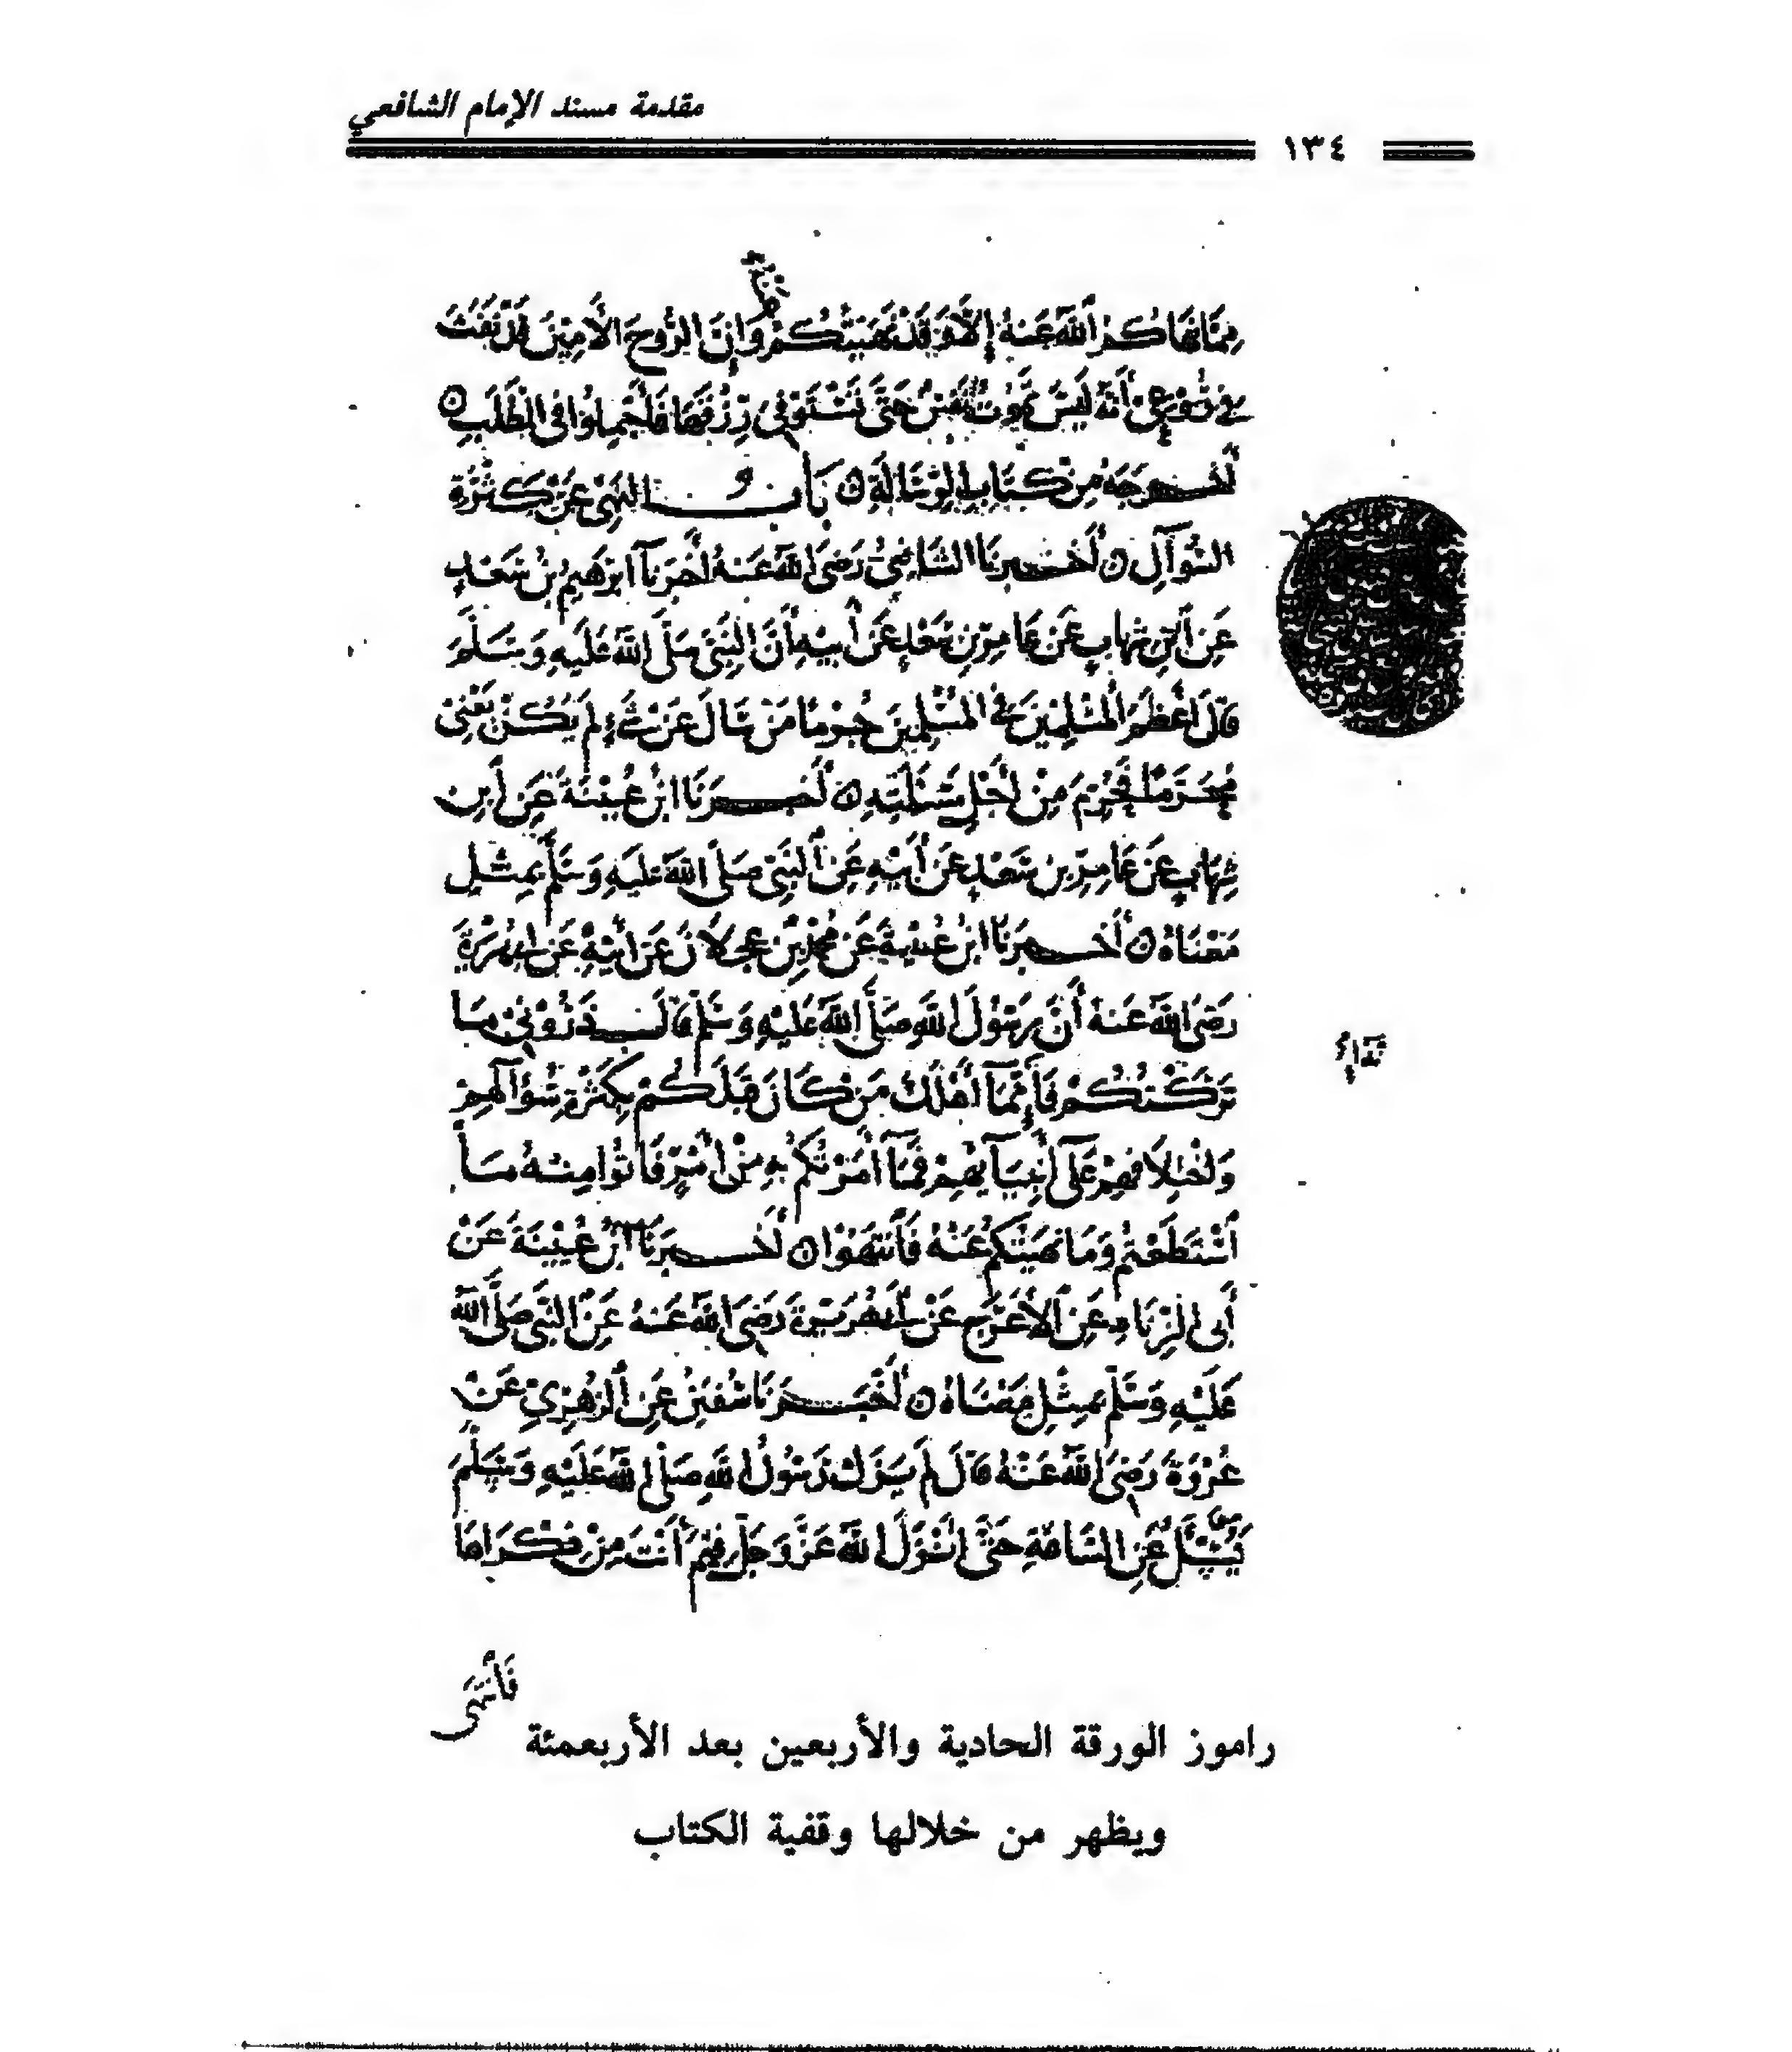 مقدمة مسند الإمام الشافعي
١٣٤
مِمَّا نَهَاكُمُ اللهُ عَنهُ إِلَّا وَقَدْ نَهَيْتُكُمْ عَنْهُ وَإِنَّ الرُّوحَ الأَمِيْنَ قَدْ نَفَثَ
فِي رُوْعِي أَنَّهُ لَيْسَ تَمُوْتُ نَفْسٌ حَتَّى تَسْتَوْفِيَ رِزْقَهَا فَأَجْمِلُوْا فِي الطَّلَبِ ٥
أَخرَجَهُ مِنْ كِتَابِ الرِّسَالَةِ ٥ بَابُ النَّهْيِ عَنْ كَثْرَةِ
السُّوَآلِ ٥ أَخبرنَا الشَّافِعِيُّ رَضِيَ اللهُ عَنهُ أَخْبَرَنَآ ابرَهِيمُ بنُ سَعْدٍ
عَنِ ابْنِ شِهابٍ عَنْ عَامِرِ بنِ سَعْدٍ عَنْ أَبيْهِ أَنَّ النَّبِيَّ صَلَّى اللهُ عَلَيهِ وَسَلَّمَ
قَالَ أَعْظَمُ المُسْلِمِيْنَ فِي المُسْلِمِينَ جُرْمًا مَنْ سَالَ عَنْ شَيْءٍ لَم يَكُنْ يَعْنِي
مُحَرَّمًا فَحُرِّمَ مِنْ أَجْلِ مَسْئَلَتِهِ ٥ أَخبَرَنَا ابْنُ عُيَيْنَةَ عَنِ ابنِ
شِهَابٍ عَنْ عَامِرِ بنِ سَعْدٍ عَنْ أَبِيْهِ عَنِ النَّبِيِّ صَلَّى اللهُ عَليهِ وَسَلَّم بِمِثْلِ
مَعْنَاهُ ٥ أَخبرَنَا ابْنُ عُيَيْنَةَ عَنْ مُحَمَّدِ بْنِ عَجْلَانَ عَنْ أَبِيْهِ عَنْ أَبِي هُرَيْرَةَ
رَضِيَ اللهُ عَنهُ أَنَّ رَسُوْلَ اللهِ صَلَّى اللهُ عَلَيْهِ وَسَلَّمَ قَالَ ذَرُوْنِيْ مَا
تَرَكْتُكُمْ فَإِنَّمَآ أَهْلَكَ مَنْ كَانَ قَبْلَكُمْ بِكَثْرَةِ سُؤَآلِهِمْ
وَاخْتِلَافِهِمْ عَلَى أَنْبِيَآئِهِمْ فَمَآ أَمَرْتُكُمْ بِهِ مِنْ أَمْرٍ فَأْتُوا مِنْهُ مَا
اسْتَطَعْتُمْ وَمَا نَهَيْتُكُمْ عَنْهُ فَانْتَهُوْا ٥ أَخبرَنَا ابْنُ عُيَيْنَةَ عَنْ
أَبِي الزِّنَادِ عَنِ الأَعْرَجِ عَنْ أَبِي هُرَيْرَةَ رَضِيَ اللهُ عَنهُ عَنِ النَّبِيِّ صَلَّى اللهُ
عَلَيْهِ وَسَلَّم بِمِثْلِ مَعْنَاهُ ٥ أَخْبَرَنَا سُفْيَنُ عَنِ الزُّهْرِيِّ عَنْ
عُرْوَةَ رَضِيَ اللهُ عَنْهُ قَالَ لَم يَزَلْ رَسُوْلُ اللهِ صَلَّى اللهُ عَلَيْهِ وَسَلَّمَ
يُسْئَلُ عَنِ السَّاعَةِ حَتَّى أَنْزَلَ اللهُ عَزَّ وَجَلَّ فِيْمَ أَنْتَ مِنْ ذِكْرَاهَا
فَانْتَهَى
راموز الورقة الحادية والأربعين بعد الأربعمئة
ويظهر من خلالها وقفية الكتاب